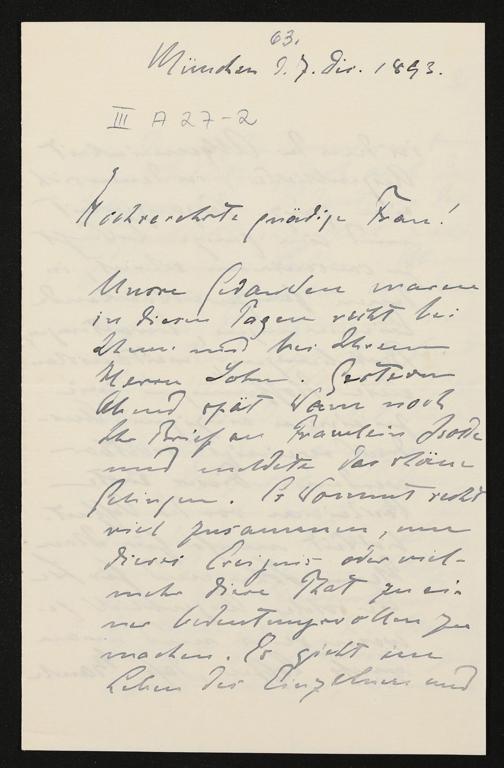 63.
München d. 7. Dec. 1893.
III A 27-2
Hochverehrte gnädige Frau!
Unsre Gedanken waren
in diesen Tagen recht bei
Ihnen und bei Ihrem
Herrn Sohn. Gestern
Abend spät kam noch
Ihr Brief an Fräulein
und meldete das schöne
Gelingen. Es kommt recht
viel zusammen, um
dieses Ereignis oder viel-
mehr diese That zu ei-
ner bedeutungsvollen zu
machen. Es giebt im
Leben des Einzelnen und